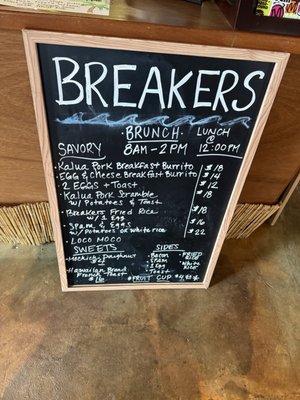 BREAKERS
BRUNCH
8AM-2PM
LUNCH @ 12:00PM
SAVORY
Kalua Pork Breakfast Burrito $18
EGG & Cheese Breakfast Burrito $14
2 EGGS + Toast $12
Kalua Pork Scramble $18
w/ Potatoes & Toast
Breakers Fried Rice $18
w/ 1 Egg
Spam & Eggs
w/ Potatoes or white rice
LOCO MOCO $22
SWEETS
Hawaiian Bread
French Toast
$16
SIDES
Bacon
Spam
1 Egg
Toast
FRIED Rice
White Rice
FRUIT CUP